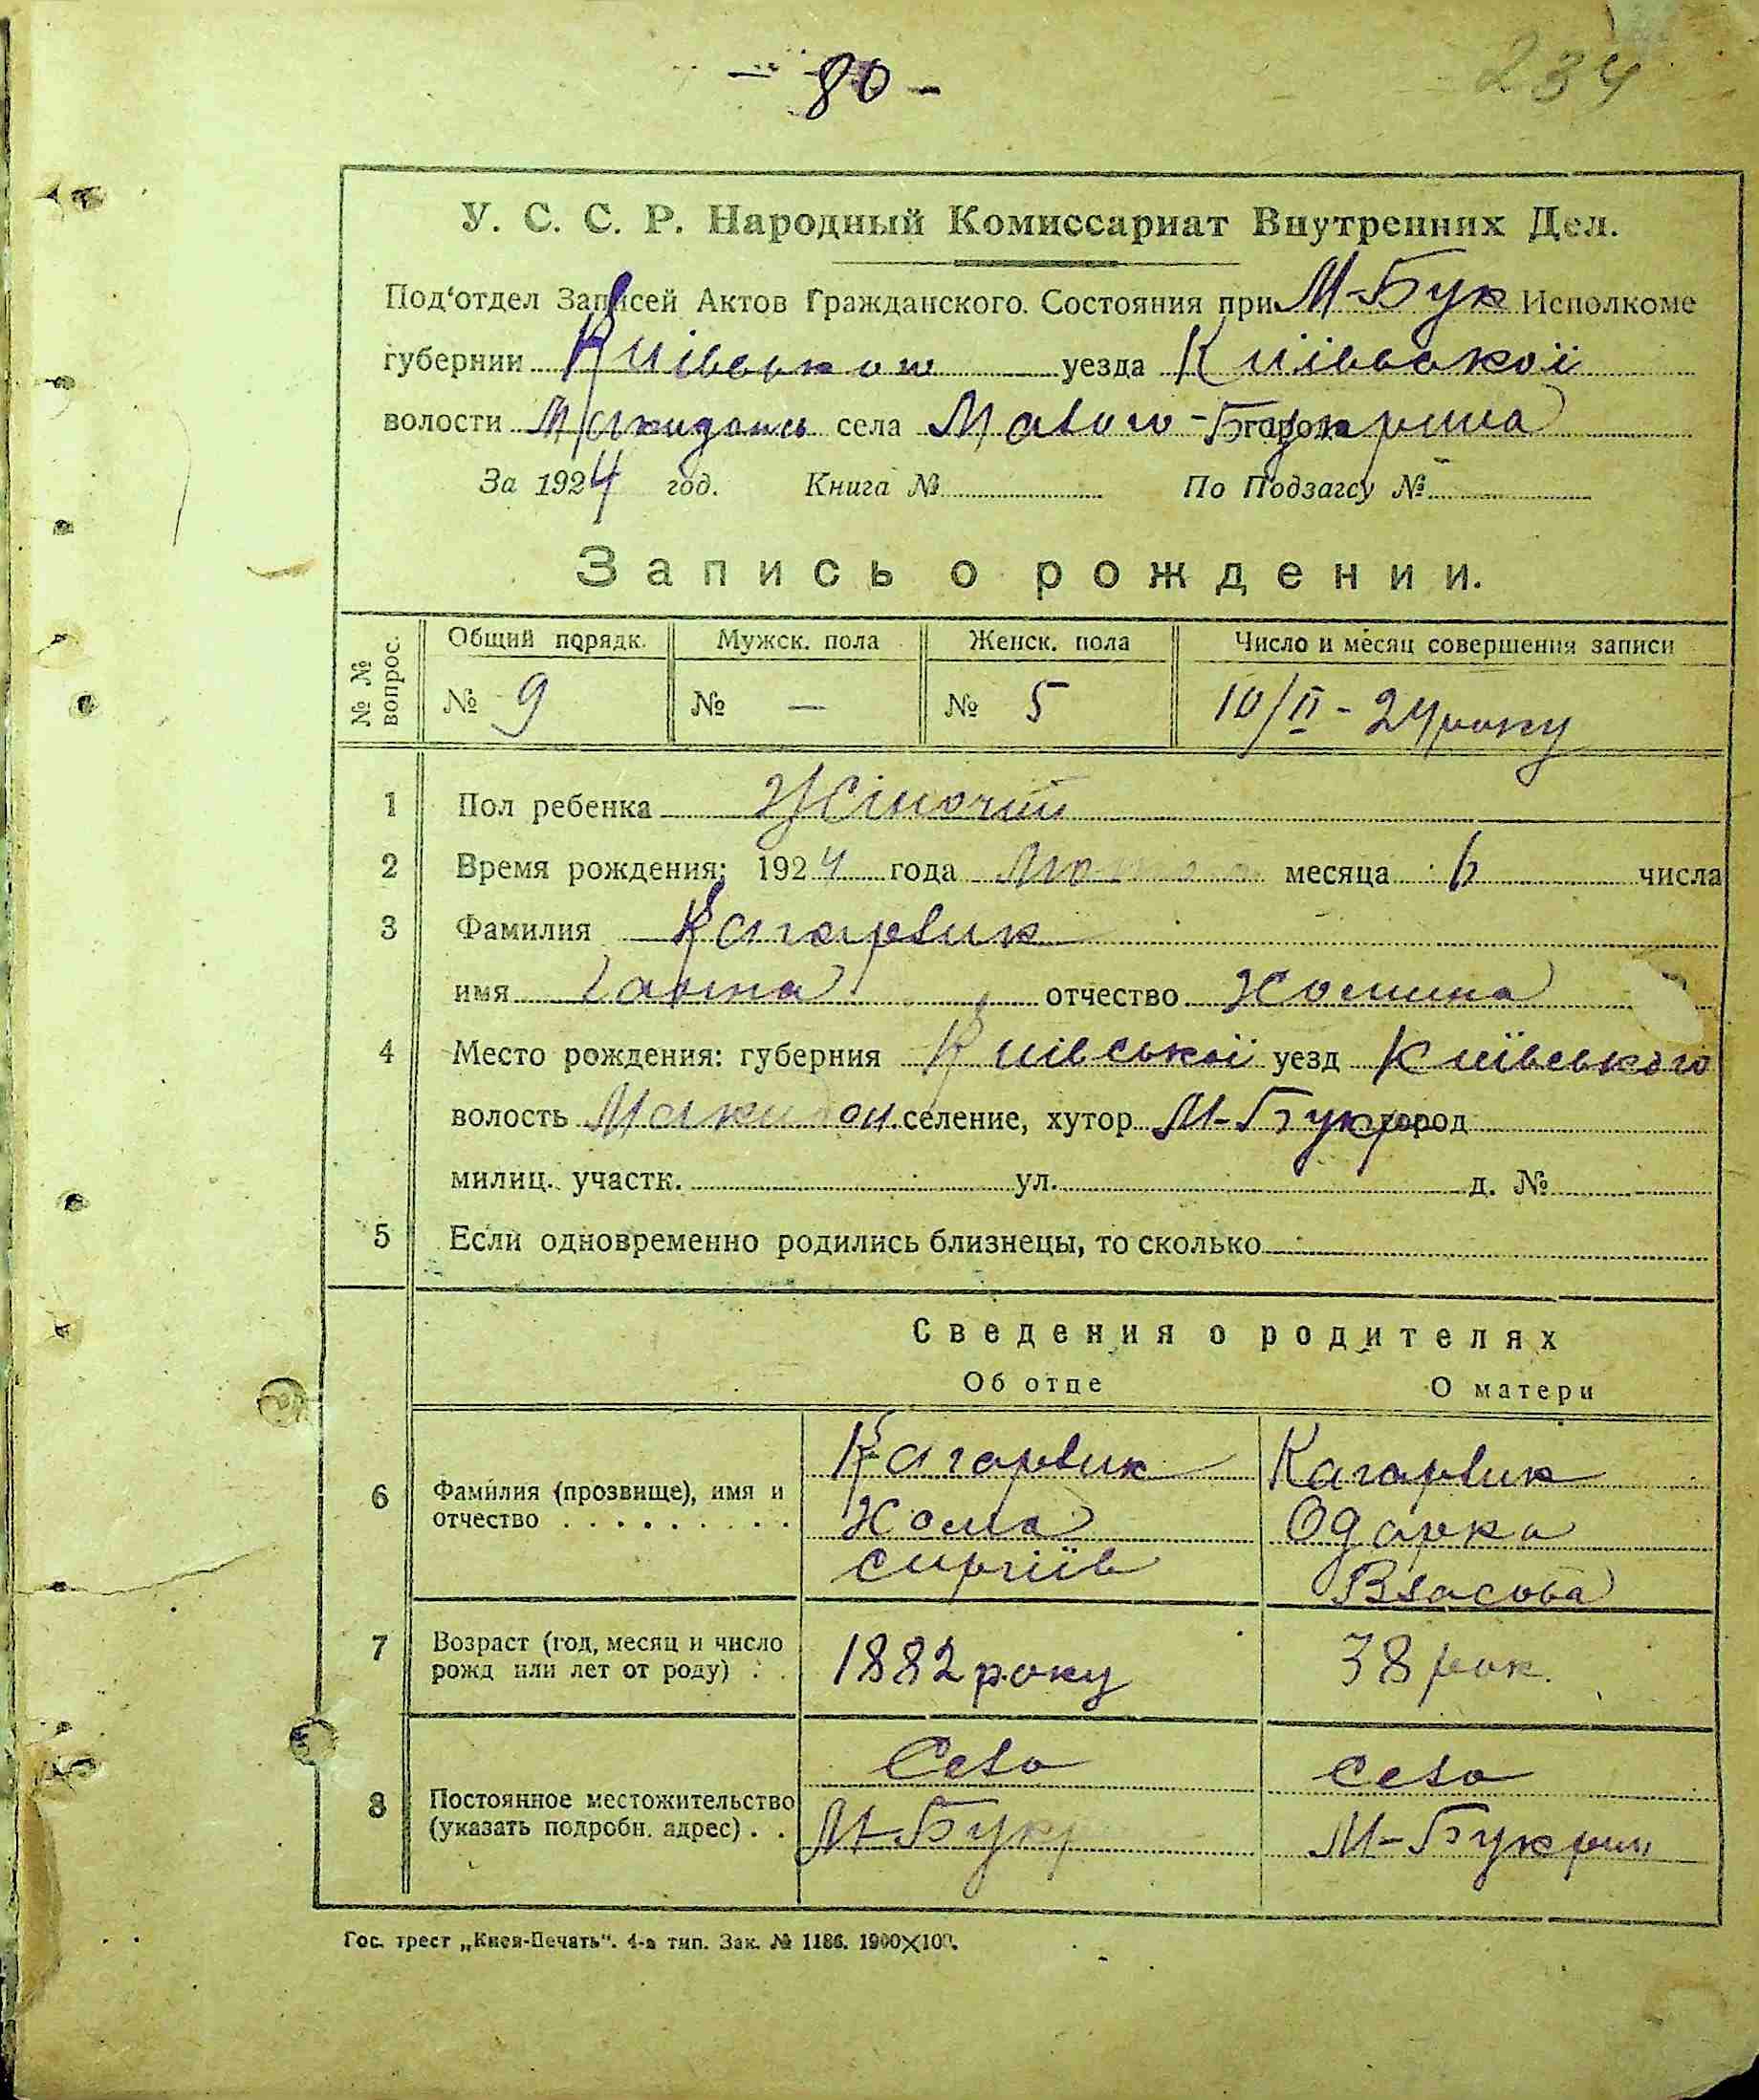 - 80 -
234
У. С. С. Р. Народный Комиссариат Внутренних Дел.
Под'отдел Записей Актов Гражданского Состояния при М-Бук Исполкоме
губернии уезда Київської
волости села Малого-Букрина города
За 1924 год. Книга № По Подзагсу №
Запись о рождении.
№ № вопрос. Общий порядк. Мужск. пола Женск. пола Число и месяц совершения записи
№ 9 № — № 5 10/II - 24 року
1 Пол ребенка Жіночий
2 Время рождения: 1924 года месяца 6 числа
3 Фамилия Кагарлик
имя Ганна отчество Хомина
4 Место рождения: губерния Київської уезд Київського
волость Макидон. селение, хутор М-Букр город
милиц. участк. ул. д. №
5 Если одновременно родились близнецы, то сколько
Сведения о родителях
Об отце О матери
Кагарлик Кагарлик
6 Фамилия (прозвище), имя и отчество Хома Одарка
Сиргіїв Власова
7 Возраст (год, месяц и число рожд или лет от роду) 1882 року 38 рок.
Село Село
8 Постоянное местожительство (указать подробн. адрес) М-Букр М-Букрин
Гос. трест „Киев-Печать“. 4-а тип. Зак. № 1186. 1900×100.